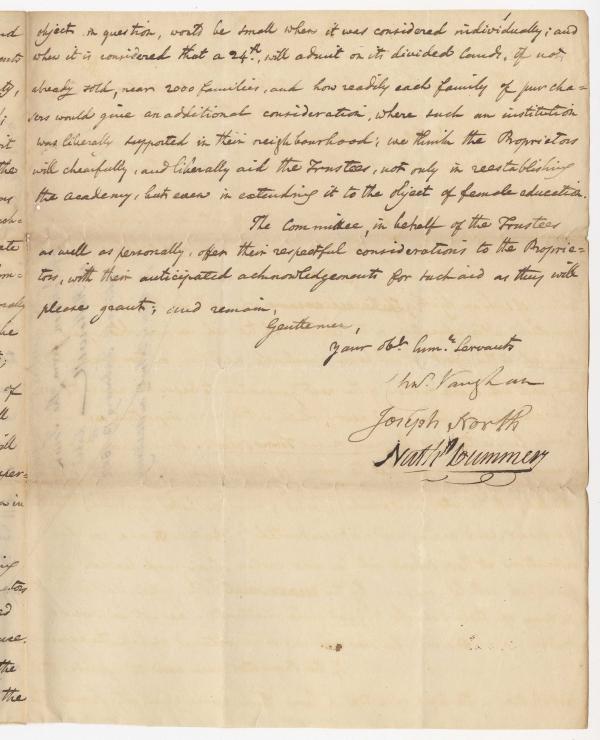 object in question, would be small when it was considered individually; and
when it is considered that a 24th, will admit on its divided Lands, if not
already sold, near 2000 families, and how readily each family of purcha=
sers would give an additional consideration, where such an institution
was liberally supported in their neighbourhood; we think the Proprietors
will chearfully, and liberally aid the Trustees, not only in reestablishing
the academy, but even in extending it to the object of female education.
The Committee, in behalf of the Trustees
as well as personally, offer their respectful considerations to the Proprie=
tors, with their anticipated acknowledgements for such aid as they will
please grant; and remain,
Gentlemen,
Your Obt. humle. Servants
Vaughan
Joseph North
Nathl Dummer
of
the
the